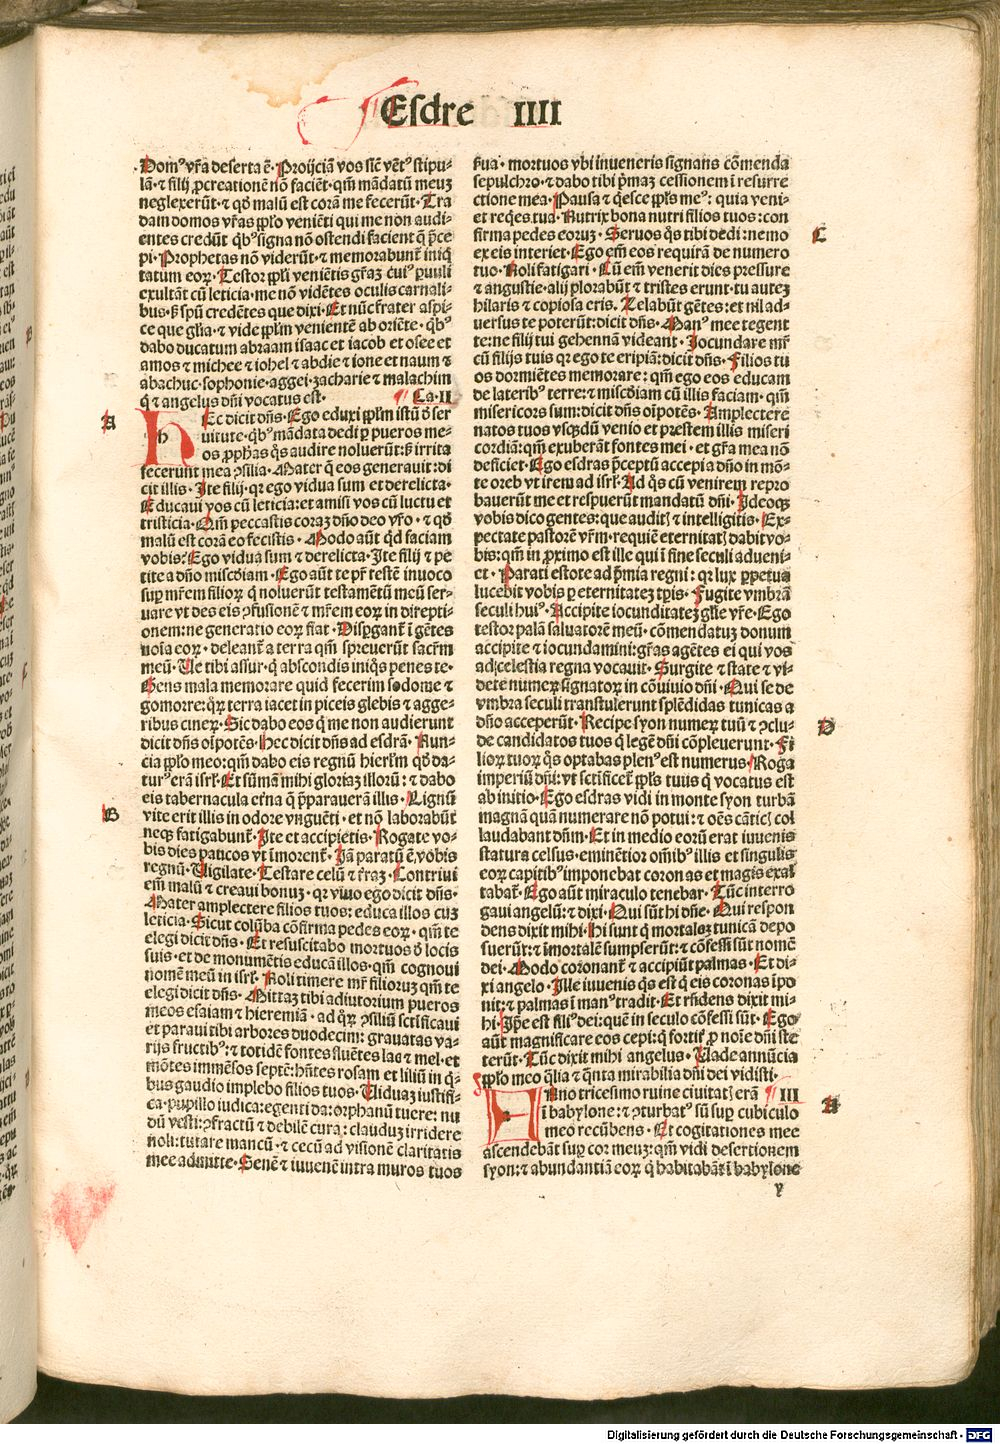 Esdre IIII
Domꝰ vr̃a deserta ē. Proijciā vos sic̄ vētꝰ stipu-
lā. ⁊ filij ꝓcreationē nō faciēt. qm̄ mādatū meuȝ
neglexerūt. ⁊ qd̄ malū est corā me fecerūt. Tra
dam domos vr̃as pp̄lo veniēti qui me non audi-
entes credūt. qͥbꝰ signa nō ostendi facient q̄ p̄ce
pi. Prophetas nō viderūt. ⁊ memorabunt̄ iniq̄
tatum eoꝝ. Testor pp̄li veniētis gr̄aȝ cuiꝰ ꝑuuli
exultāt cū leticia. me nō vidētes oculis carnali-
bus. ß sp̄u credētes que dixi. Et nūc frater aspi-
ce que gl̄ia. ⁊ vide pp̄lm venientē ab oriēte. qͥbꝰ
dabo ducatum abraam isaac et iacob et osee et
amos ⁊ michee ⁊ iohel ⁊ abdie ⁊ ione et naum ⁊
abachuc. sophonie. aggei. zacharie ⁊ malachim
q̄ ⁊ angelus dn̄i vocatus est. Ca. II
A
Hec dicit dn̄s. Ego eduxi pp̄lm istū d̄ ser
uitute. qͥbꝰ mādata dedi ꝑ pueros me-
os ꝓphas q̄s audire noluerūt: ß irrita
fecerunt mea ↄsilia. Mater q̄ eos generauit: di
cit illis. Ite filij. qꝛ ego vidua sum et derelicta.
Educaui vos cū leticia: et amisi vos cū luctu et
tristicia. Qm̄ peccastis coraȝ dn̄o deo vr̄o. ⁊ qd̄
malū est corā eo fecistis. Modo aūt qd̄ faciam
vobis. Ego vidua sum ⁊ derelicta. Ite filij ⁊ pe
tite a dn̄o mīscdiam. Ego aūt te pr̄ testē inuoco
suꝑ mr̄em filioꝝ q̄ noluerūt testamētū meū ser-
uare vt des eis ↄfusionē ⁊ mr̄em eoꝝ in direpti-
onem: ne generatio eoꝝ fiat. Disꝑgant̄ ī gētes
noīa eoꝝ. deleant̄ a terra qm̄ spreuerūt sacr̄m
meū. Ue tibi assur. q̄ abscondis iniq̄s penes te.
Gens mala memorare quid fecerim sodome ⁊
gomorre: qꝝ terra iacet in piceis glebis ⁊ agge-
ribus cineꝝ. Sic dabo eos q̄ me non audierunt
dicit dn̄s oīpotēs. Hec dicit dn̄s ad esdrā. Nun-
cia pp̄lo meo: qm̄ dabo eis regnū hierl̄m qd̄ da-
turꝰ erā isrl̄. Et sūmā mihi gloriaȝ illorū: ⁊ dabo
eis tabernacula et̄na q̄ p̄parauerā illis. Lignū
B
vite erit illis in odore vnguēti. et nō laborabūt
neqꝫ fatigabunt̄. Ite et accipietis. Rogate vo-
bis dies paucos vt īmorent̄. Iā paratū ē vobis
regnū. Uigilate. Testare celū ⁊ t̄raȝ. Contriui
em̄ malū ⁊ creaui bonuȝ. qꝛ viuo ego dicit dn̄s.
Mater amplectere filios tuos: educa illos cuȝ
leticia. Sicut colūba cōfirma pedes eoꝝ. qm̄ te
elegi dicit dn̄s. Et resuscitabo mortuos d̄ locis
suis. et de monumētis educā illos. qm̄ cognoui
nomē meū in isrl̄. Noli timere mr̄ filioruȝ qm̄ te
elegi dicit dn̄s. Mittaȝ tibi adiutorium pueros
meos esaiam ⁊ hieremiā. ad qꝝ ↄsiliū sc̄tificaui
et paraui tibi arbores duodecim: grauatas va-
rijs fructibꝰ: ⁊ totidē fontes fluētes lac ⁊ mel. et
mōtes immēsos septē: hn̄tes rosam et liliū in q̄-
bus gaudio implebo filios tuos. Uiduaȝ iustifi-
ca. pupillo iudica: egenti da: orphanū tuere: nu
dū vesti: ↄfractū ⁊ debilē cura: clauduȝ irridere
noli: tutare mancū. ⁊ cecū ad visionē claritatis
mee admitte. Senē ⁊ iuuenē intra muros tuos
ßua. mortuos vbi inueneris signans cōmenda
sepulchro. ⁊ dabo tibi p̄maȝ cessionem ī resurre
ctione mea. Pausa ⁊ q̄esce pp̄ls meꝰ: quia veni-
et req̄es tua. Nutrix bona nutri filios tuos: con
C
firma pedes eoruȝ. Seruos q̄s tibi dedi: nemo
ex eis interiet. Ego em̄ eos requirā de numero
tuo. Noli fatigari. Cū em̄ venerit dies pressure
⁊ angustie. alij plorabūt ⁊ tristes erunt. tu auteȝ
hilaris ⁊ copiosa eris. Zelabūt gētes: et nil ad-
uersus te poterūt: dicit dn̄s. Manꝰ mee tegent
te: ne filij tui gehennā videant. Iocundare mr̄
cū filijs tuis qꝛ ego te eripiā: dicit dn̄s. Filios tu
os dormiētes memorare: qm̄ ego eos educam
de lateribꝰ terre: ⁊ mīscdiam cū illis faciam. qm̄
misericors sum: dicit dn̄s oīpotēs. Amplectere
natos tuos vsqꝫdū venio et prestem illis miseri
cordiā: qm̄ exuberāt fontes mei. et gr̄a mea nō
deficiet. Ego esdras p̄ceptū accepi a dn̄o in mō-
te oreb vt irem ad isrl̄. Ad q̄s cū venirem repro
bauerūt me et respuerūt mandatū dn̄i. Ideoqꝫ
vobis dico gentes: que auditꝭ ⁊ intelligitis. Ex-
pectate pastorē vr̄m. requiē eternitatꝭ dabit vo-
bis: qm̄ in ꝓximo est ille qui ī fine seculi adueni-
et. Parati estote ad p̄mia regni: qꝛ lux ꝑpetua
lucebit vobis ꝑ eternitateȝ tꝑis. Fugite vmbrā
seculi huiꝰ. Accipite iocunditateȝ glīe vr̄e. Ego
testor palā saluatorē meū. cōmendatuȝ donum
accipite ⁊ iocundamini: gr̄as agētes ei qui vos
ad celestia regna vocauit. Surgite ⁊ state ⁊ vi-
dete numeꝝ signatoꝝ in cōuiuio dn̄i. Qui se de
vmbra seculi transtulerunt splēdidas tunicas a
dn̄o acceperūt. Recipe syon numeꝝ tuū ⁊ ↄclu-
D
de candidatos tuos q̄ legē dn̄i cōpleuerunt. Fi
lioꝝ tuoꝝ q̄s optabas plenꝰ est numerus. Roga
imperiū dn̄i: vt sc̄tificet̄ pp̄ls tuus q̄ vocatus est
ab initio. Ego esdras vidi in monte syon turbā
magnā quā numerare nō potui: ⁊ oēs cāticꝭ col
laudabant dn̄m. Et in medio eorū erat iuuenis
statura celsus. eminētior oīm̄ibꝰ illis et singulis
eoꝝ capitibꝰ imponebat coronas et magis exal
tabat̄. Ego aūt miraculo tenebar. Tūc interro
gaui angelū: ⁊ dixi. Qui sūt hi dn̄e. Qui respon
dens dixit mihi. Hi sunt q̄ mortaleȝ tunicā depo
suerūt: ⁊ īmortalē sumpserūt: ⁊ cōfessi sūt nomē
dei. Modo coronant̄ ⁊ accipiūt palmas. Et di-
xi angelo. Ille iuuenis q̄s est q̄ eis coronas īpo
nit: ⁊ palmas ī manꝰ tradit. Et rn̄dens dixit mi-
hi. Ip̄e est filiꝰ dei: quē in seculo cōfessi sūt. Ego
aūt magnificare eos cepi: q̄ fortit̄ ꝓ noīe dn̄i ste
terūt. Tūc dixit mihi angelus. Uade annūcia
pp̄lo meo q̄lia ⁊ q̄nta mirabilia dn̄i dei vidisti.
Anno tricesimo ruine ciuitatꝭ erā III
A
ī babylone: ⁊ ↄturbatꝰ sū suꝑ cubiculo
meo recūbens. Et cogitationes mee
ascendebāt suꝑ cor meuȝ: qm̄ vidi desertionem
syon: ⁊ abundantiā eoꝝ q̄ habitabāt ī babylone
y
Digitalisierung gefördert durch die Deutsche Forschungsgemeinschaft - DFG